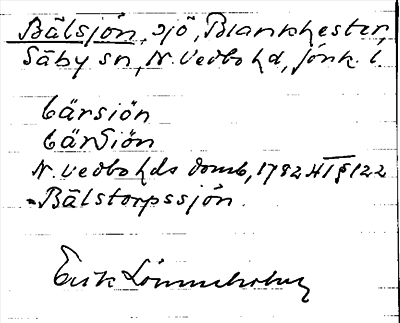 Bälsjön, sjö, Blankhester,
Säby sn, N. Vedbo hd, Jönk. l.
bärsiön
bärsiön
N. Vedbo hds domb, 1782 HT § 122
= Bälstorpssjön.
Erik